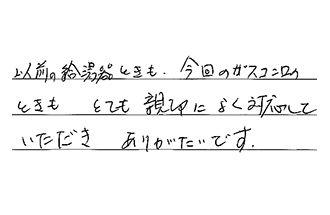 以前の給湯器ときも、今回のガスコンロの
ときも とても 親切に よく対応して
いただき ありがたいです.